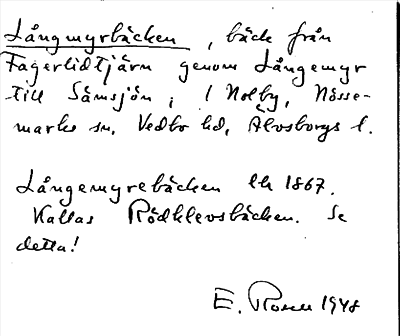 Långmyrbäcken, bäck från
Fagerlidtjärn genom Långemyr
till Sämsjön, i Nolby, Nösse-
marks sn, Vedbo hd, Älvsborgs l.
Långemyrebäcken Ek 1867.
Kallas Rödklevsbäcken. Se
detta!
E. Rosell 1948